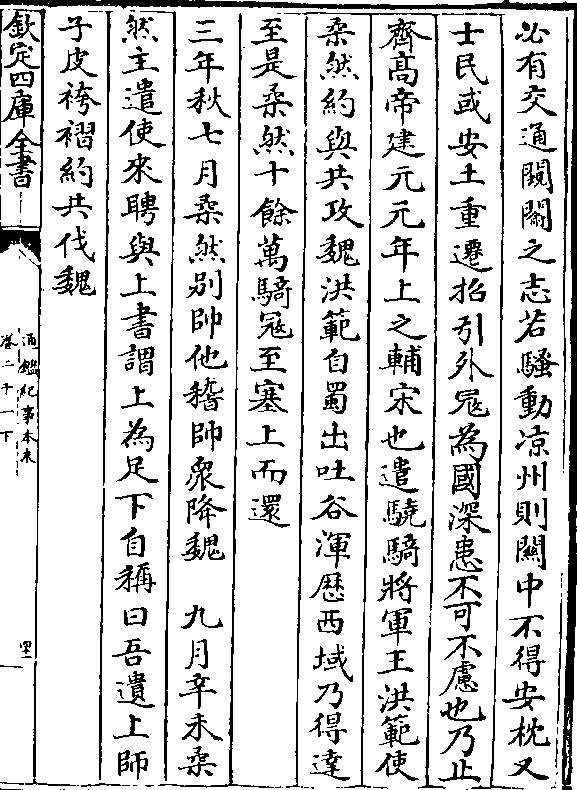 必有交通闚𨵦之志若騷動凉州則關中不得安枕又
士民或安土重遷招引外宼為國深患不可不慮也乃止
齊髙帝建元元年上之輔宋也遣驍騎將軍王洪範使
柔然約與共攻魏洪範自蜀出吐谷渾歴西域乃得達
至是柔然十餘萬騎宼至塞上而還
三年秋七月柔然别帥他稽帥衆降魏　九月辛未柔
然主遣使來聘與上書謂上為足下自稱曰吾遺上師
子皮袴褶約共伐魏
欽定四庫全書
通鑑紀事本末
卷二十一下